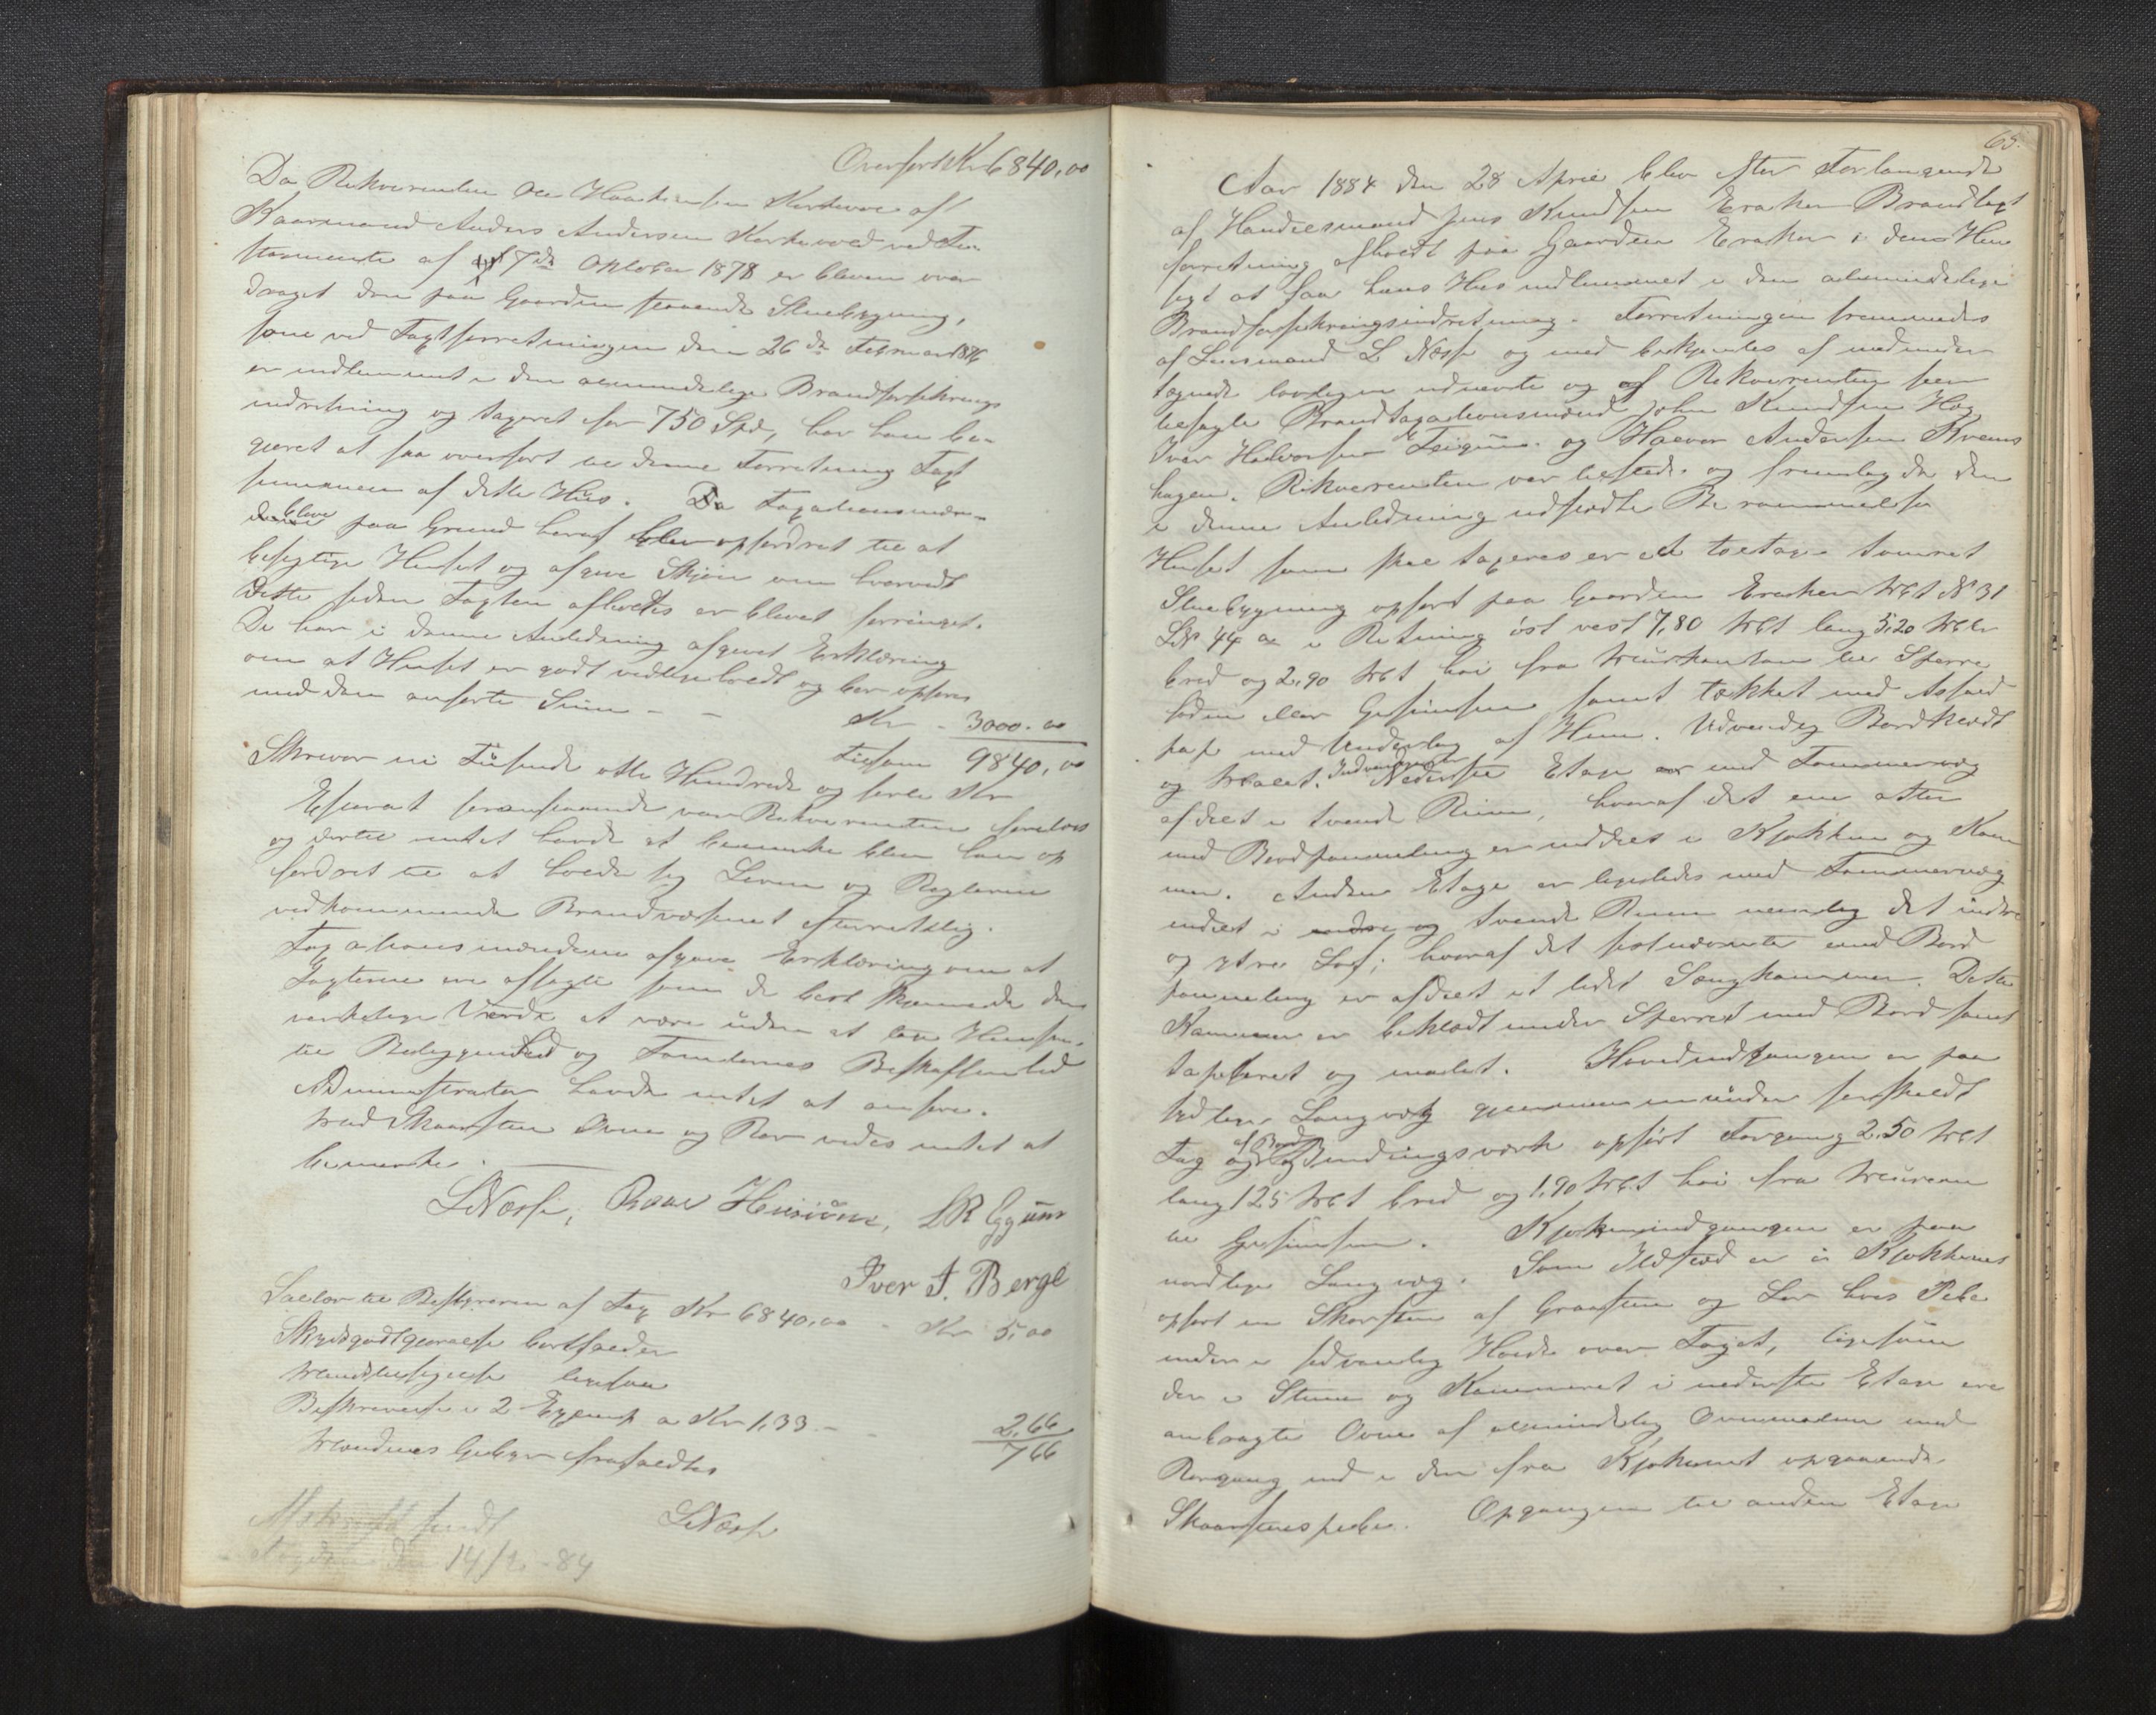 Overført Kr 6840,00
Da Rekvirenten Ole Haakensen Korkevoe af
Kaarmand Anders Andersen Korkevold ved Te-
stamente af 7de Oktober 1878 er bleven over
draget den paa Gaarden staaende Stuebygning,
som ved Taxtforretningen den 26de Februar 1876
er indlemmet i den almindelige Brandforsikrings
indretning og taxeret for 750 Spd, har han be-
gjæret at faa overført til denne Forretning Taxt
summen af dette Hus. Da Taxationsmæn-
dene bleve paa Grund heraf opfordret til at
besigtige Huset og afgive Skjøn om hvorvidt
Dette siden Taxten afholdtes er blevet forringet.
De har i denne Anledning afgivet Erklæring
om at Huset er godt vedligeholdt og bør opføres
med den anførte Sum - - Kr - 3000.00
tilsam 9840,00
Skriver ni Tusinde otte Hundrede og førti Kr
Efterat foranstaaende var Rekvirenten forelæst
og dertil intet havde at bemærke blev han op
fordret til at holde sig Loven og Reglerne
vedkommende Brandvæsenet efterrettelig.
Taxationsmændene afgave Erklæring om at
Taxterne ere afsagte som de bedst skjønnede den
verkelige Værdi at være uden at tage Hensyn
til Beliggenhed og Tomternes Beskaffenhed
Administrator havde intet at anføre.
Med Skorsten Ovne og Rør vides intet at
bemerke.
L Næss, LR Eggum
Iver T. Berge
Sallær til Bestyreren af Tax Kr 6840,00 - Kr 5,00
Skydsgodtgjørelse bortfalder
Mændsbesigtelse ligesaa
Beskrivelse i 2 Exemp a Kr 1,33 - - 2,66
7 66
Mændenes Gebyr frafaldtes
L Næss
Afskrift sendt
den 14/ -84
65.
Aar 1884 den 28 April blev efter Forlangende
af Handelsmand Jens Knudsen Eraker Brandtaxt
forretning afholdt paa Gaarden Eraker i den Hen
sigt at faa hans Hus indlemmet i den almindelige
Brandforsikringsindretning. Forretningen fremmedes
af Lensmand L Næss og med betjentes af nedunder
tegnede lovligen udnævnte og af Rekvirenten hen
besagte Brandtaxationsmænd John Knudsen Hæg
Iver Halvorsen Teigum og Halvor Andersen Kvems
hagen. Rekvirenten var tilstede og fremlagde den
i denne Anledning udstædte Berammelse
Huset som skal taxeres er et toetages tømret
Stuebygning opført paa Gaarden Eraker Mat N 31
LN 44 a i Retning øst vest 7,80 Met lang 5,20 Met
bred og 2,90 Met høi fra Murkanten til Sperre
foden eller Gesimsen samt tækket med Asfald
pap med Underlag af Hun. Udvendig Bordklædt
og Malet. Indvendig Nederste Etage er med Tømmervæg
afdelt i tvende Rum, hvoraf det ene atter
med Bordpanneling er inddelt i Kjøkken og Kam
mer. Anden Etage er ligeledes med Tømmervæg
inddelt i tvende Rum nemlig det indre
og ytre Loft; hvoraf det sistnævnte med Bord
panneling er afdelt et lidet Sængkammer. Dette
Kammer er beklædt under Sperret med Bord samt
tapseret og malet. Hovedindgangen er paa
sydlige Langvæg gjennem en under særskildt
Tag af Bord og Bindingsværk opført Forgang 2.50 Met
lang 125 Met bred og 1,90 Met høi fra Muren
til Gesimsen. Kjøkkenindgangen er paa
nordlige Langvæg. Som Ildsted er i Kjøkkenet
opført en Skorsten af Graasten og Ler hvis Pibe
ender i sædvanlig Høide over Taget, ligesom
der i Stuen og Kammeret i nederste Etage ere
anbragte Ovne af almindelig med
Rørgang ind i den fra Kjøkkenet opgaaende
Skorstenspibe. Opgangen til anden Etage